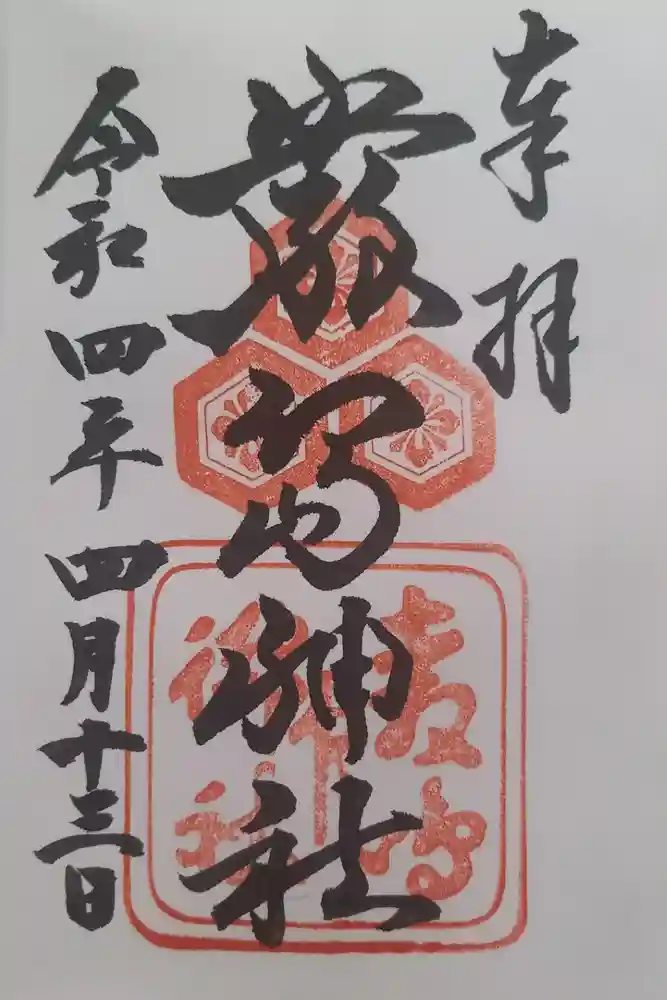 奉拝
厳島神社
令和四年四月十三日